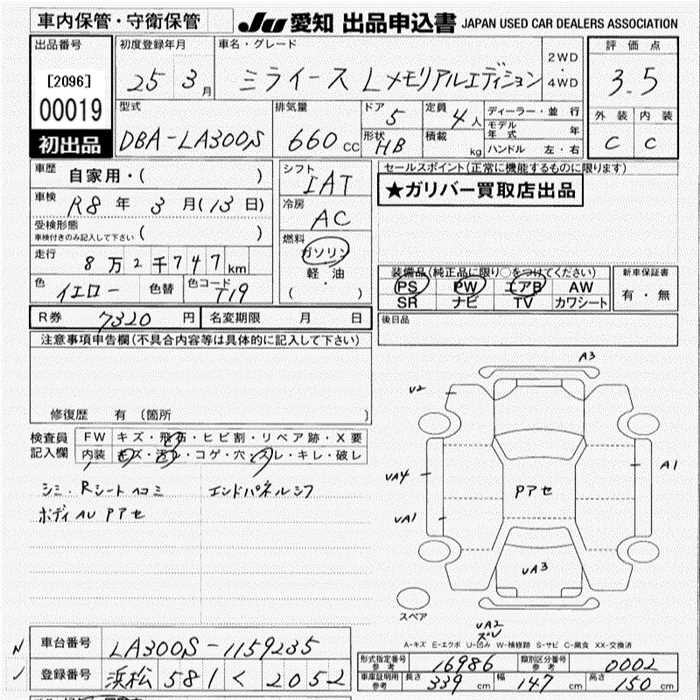 車内保管・守衛保管
JU 愛知 出品申込書 JAPAN USED CAR DEALERS ASSOCIATION
出品番号
[2096]
00019
初出品
初度登録年月
25 3月
車名・グレード
ミライース Lメモリアルエディション
2WD
・
4WD
評価点
3.5
外装 内装
C C
型式
DBA-LA300S
排気量
660 cc
ドア 5
形状 HB
定員 4人
積載 kg
ディーラー・並行
モデル年式 年
ハンドル 左・右
車歴 自家用・( )
車検 R8年 3月(13日)
受検形態
車検付きのみ記入して下さい ( )
走行 8万2千747km
色 イエロー 色替 色コード T19
シフト
IAT
冷房
AC
燃料
ガソリン
軽・油
・
( )
セールスポイント(正常に機能するものに限る)
★ガリバー買取店出品
装備品(純正品に限り○をつけてください)
PS PW エアB AW
SR ナビ TV カワシート
新車保証書
有・無
後日品
R券 7320円 名変期限 月 日
注意事項申告欄(不具合内容等は具体的に記入して下さい)
修復歴 有 (箇所 )
検査員記入欄
FW キズ・飛石・ヒビ割・リペア跡・X要
内装 キズ・汚レ・コゲ・穴・スレ・キレ・破レ
シミ・Rシートヘコミ エンドパネルシフ
ボディAU Pアセ
A3
U2
A1
UA4
Pアセ
UA1
UA3
スペア
UA2
A-キズ E-エクボ U-凹み W-補修跡 S-サビ C-腐食 XX-交換済
車台番号 LA300S-1159235
登録番号 浜松 581 く 2052
形式指定番号 参考 16986 類別区分番号 参考 0002
車庫証明用 参考 長さ 339cm 幅 147cm 高さ 150cm